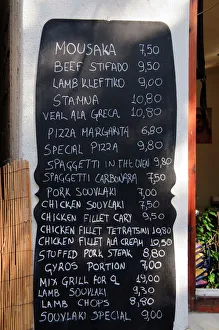 MOUSAKA 7,50
BEEF STIFADO 9,50
LAMB KLEFTIKO 9,00
STAMNA 10,80
VEAL ALA GRECA 10,80
PIZZA MARGARITA 6,80
SPECIAL PIZZA 9,80
SPAGGETTI IN THE OVEN 9,80
SPAGETTI CARBONARA 7,50
PORK SOUVLAKI 7,00
CHICKEN SOUVLAKI 7,50
CHICKEN FILLET CARY 9,50
CHICKEN FILLET TETRATSINI 10,80
CHICKEN FILLET ALA CREAM 10,50
STUFFED PORK STEAK 8,80
GYROS PORTION 7,00
MIX GRILL FOR 2 19,00
LAMB SOUVLAKI 9,30
LAMB CHOPS 8,80
SOUVLAKI SPECIAL 9,00